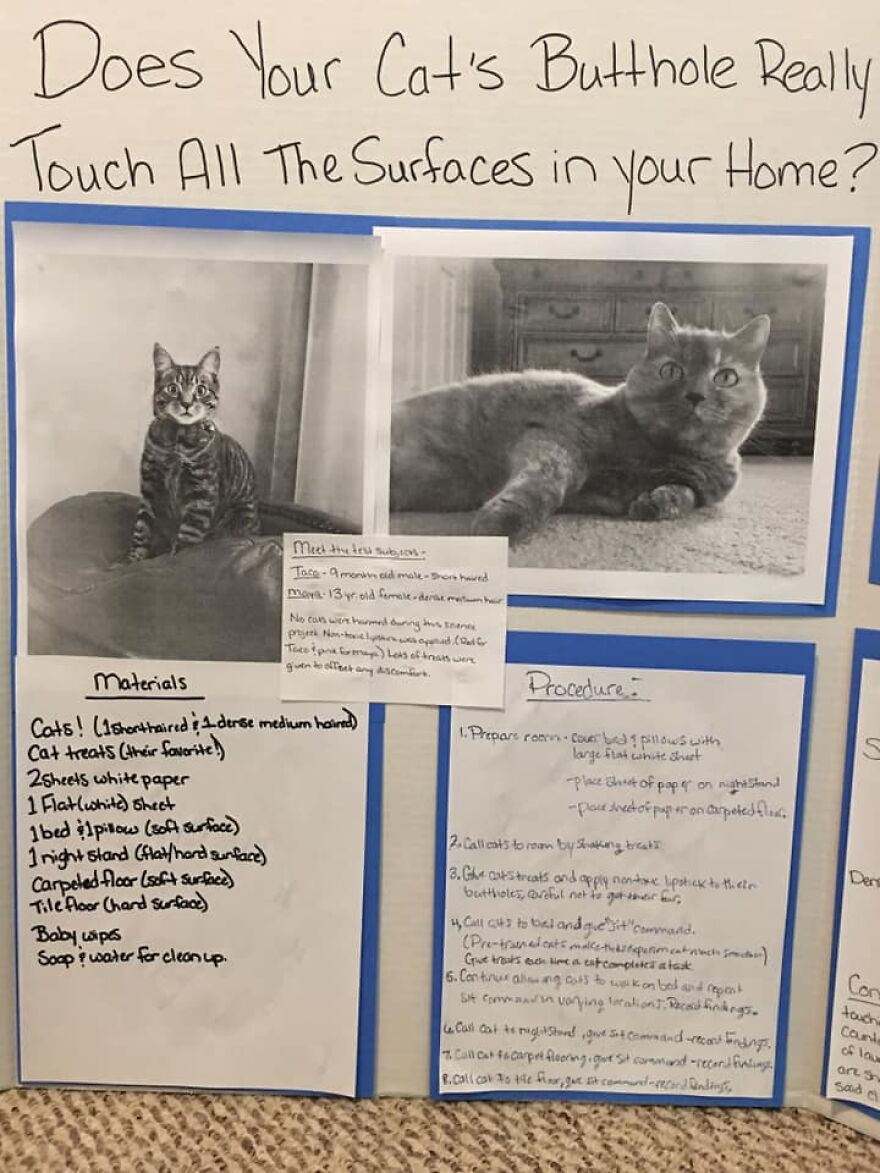 Does Your Cat's Butthole Really
Touch All The Surfaces in your Home?
Meet the test subjects-
Taco - 9 month old male - short haired
Maya - 13 yr. old female - dense medium hair
No cats were harmed during this science
project. Non-toxic lipstick was applied. (Red for
Taco & pink for Maya) Lots of treats were
given to offset any discomfort.
Materials
Cats! (1 shorthaired & 1 dense medium haired)
Cat treats (their favorite!)
2 sheets white paper
1 Flat (white) sheet
1 bed & 1 pillow (soft surface)
1 night stand (flat/hard surface)
Carpeted floor (soft surface)
Tile floor (hard surface)
Baby wipes
Soap & water for clean up.
Procedure:
1. Prepare room - cover bed & pillows with
large flat white sheet
- place sheet of paper on nightstand
- place sheet of paper on carpeted floor.
2. Call cats to room by shaking treats.
3. Give cats treats and apply non-toxic lipstick to their
buttholes, careful not to get their fur.
4. Call cats to bed and give "sit" command.
(Pre-trained cats make this experiment much smoother)
Give treats each time a cat completes a task
5. Continue allowing cats to walk on bed and repeat
sit command in varying locations. Record findings.
6. Call cat to nightstand, give sit command - record findings.
7. Call cat to carpet flooring, give sit command - record findings.
8. Call cat to tile floor, give sit command - record findings.
S
Den
Con
touchi
Count
of lau
are sh
said cl